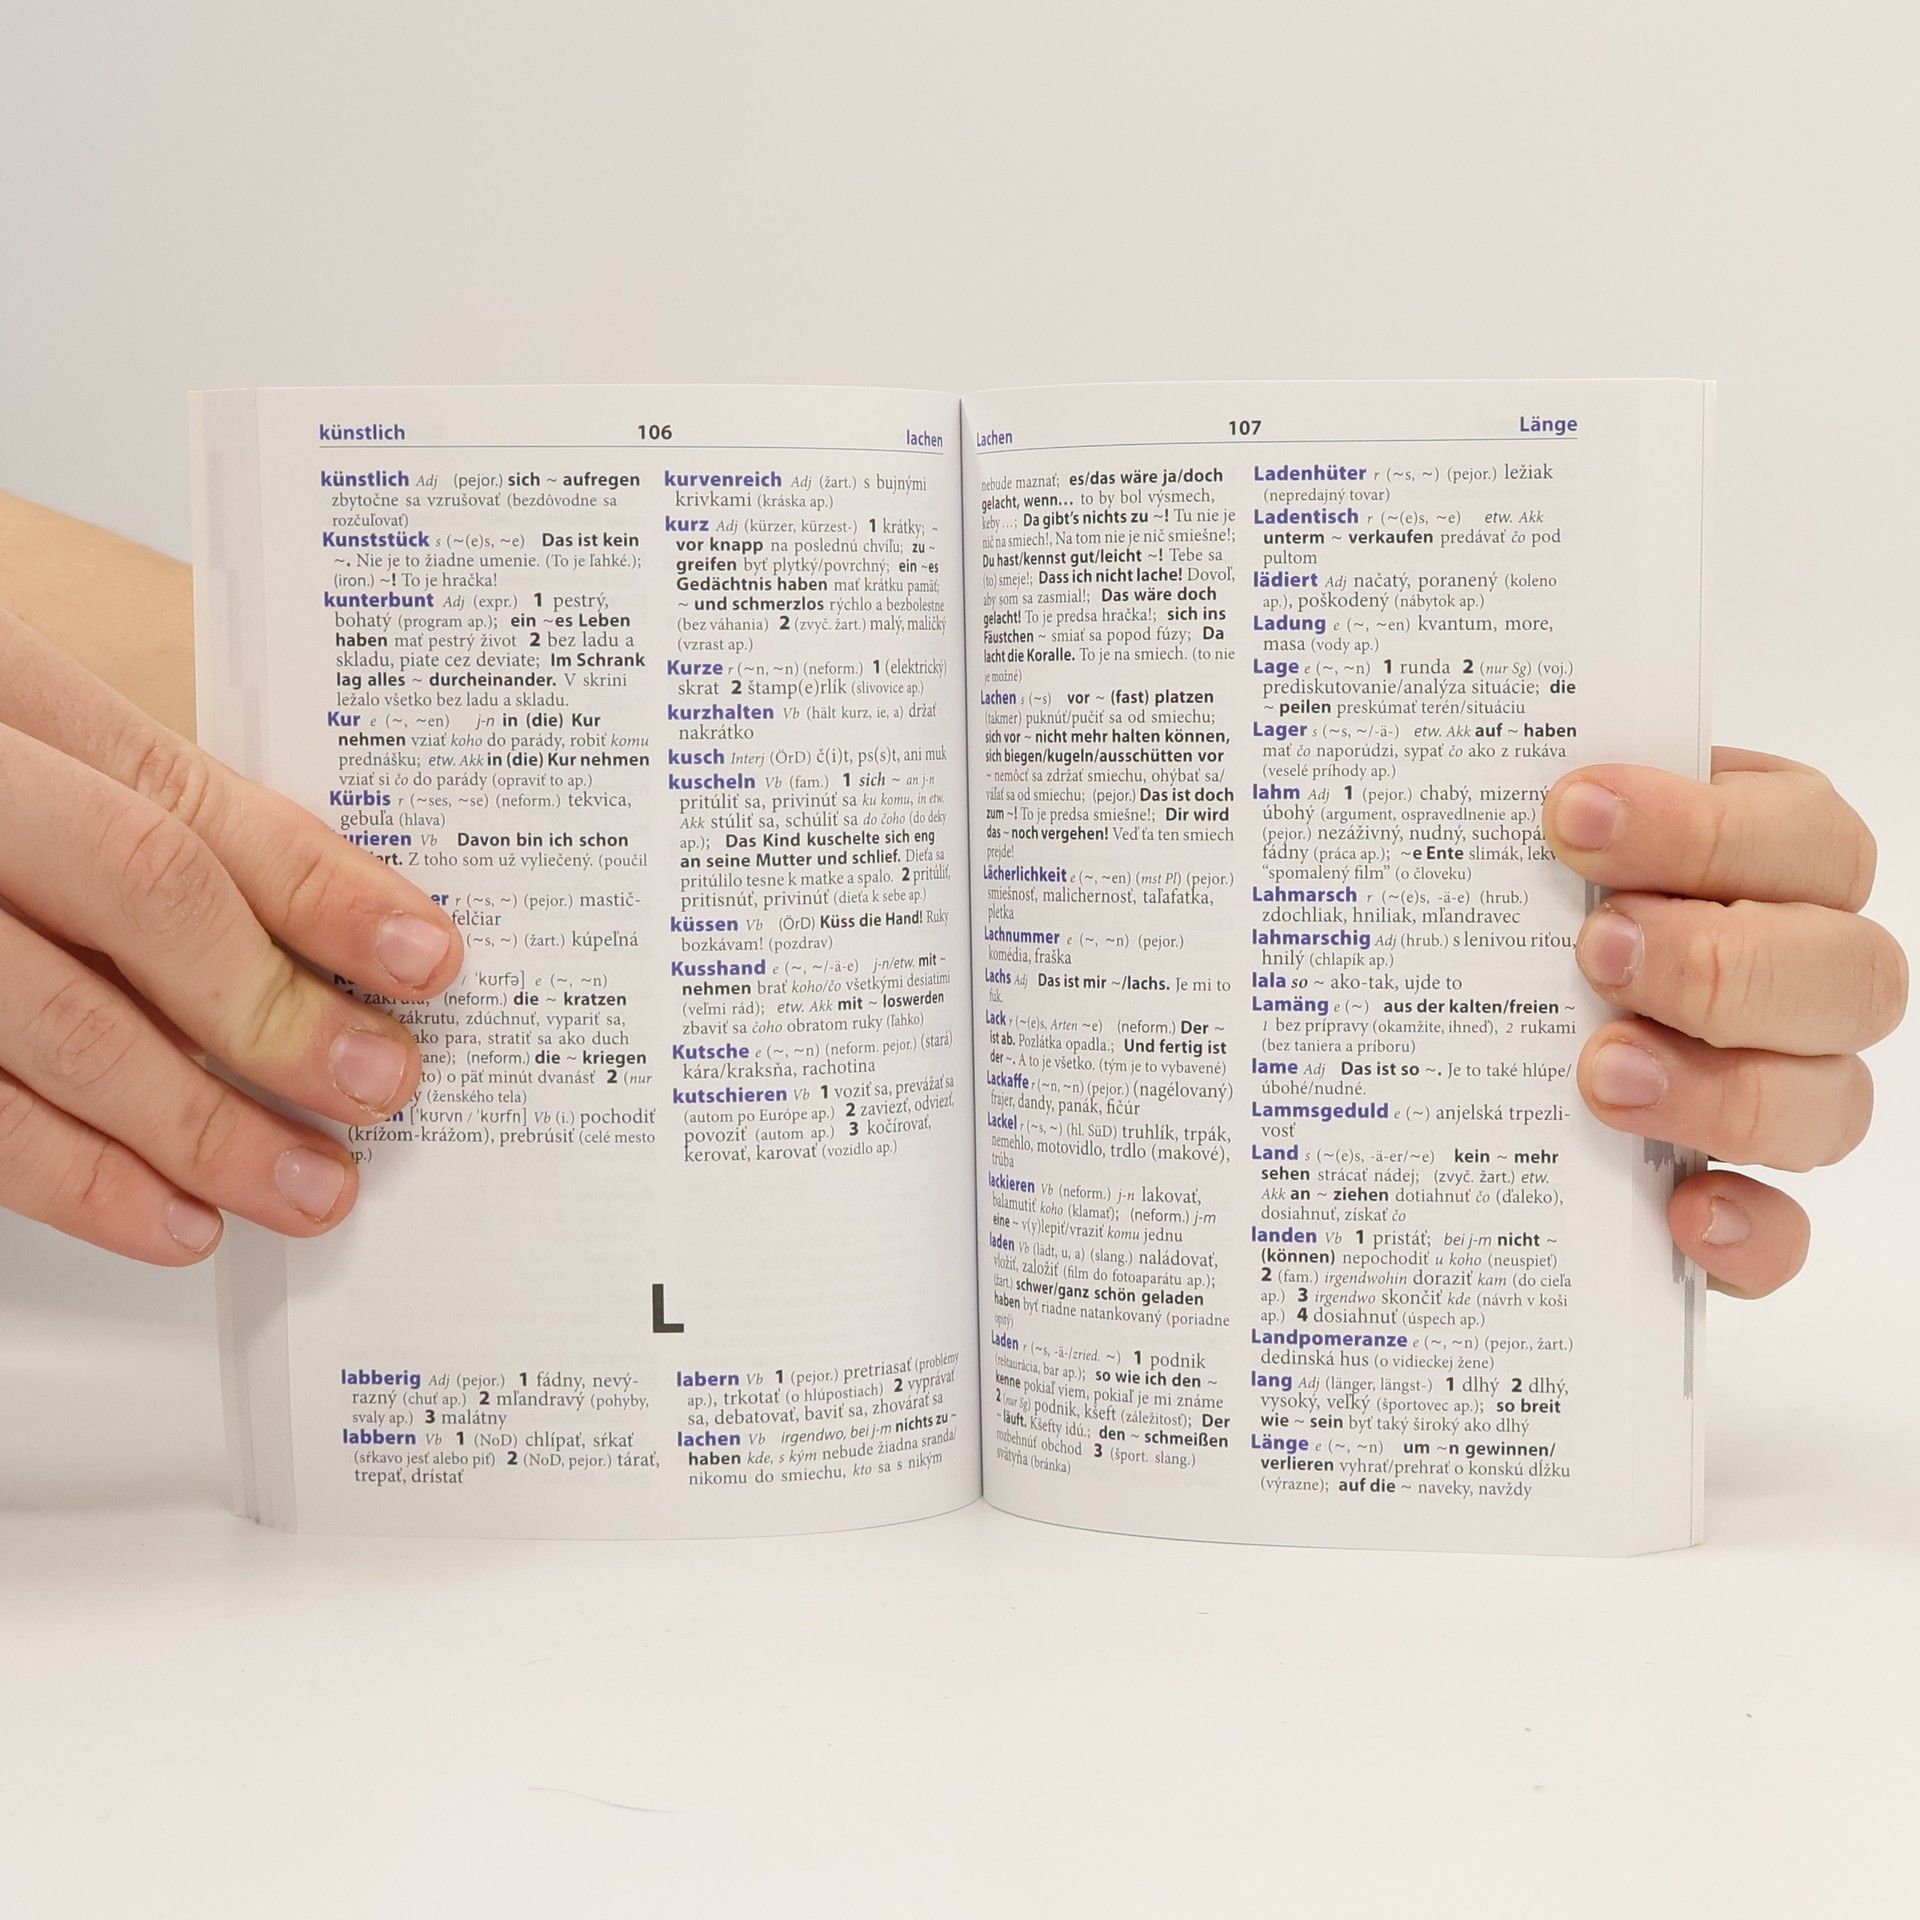 künstlich 106 lachen
künstlich Adj (pejor.) sich ~ aufregen
zbytočne sa vzrušovať (bezdôvodne sa
rozčuľovať)
Kunststück s (~(e)s, ~e) Das ist kein
~. Nie je to žiadne umenie. (To je ľahké.);
(iron.) ~! To je hračka!
kunterbunt Adj (expr.) 1 pestrý,
bohatý (program ap.); ein ~es Leben
haben mať pestrý život 2 bez ladu a
skladu, piate cez deviate; Im Schrank
lag alles ~ durcheinander. V skrini
ležalo všetko bez ladu a skladu.
Kur e (~, ~en) j-n in (die) Kur
nehmen vziať koho do parády, robiť komu
prednášku; etw. Akk in (die) Kur nehmen
vziať si čo do parády (opraviť to ap.)
Kürbis r (~ses, ~se) (neform.) tekvica,
gebuľa (hlava)
urieren Vb Davon bin ich schon
art. Z toho som už vyliečený. (poučil
er r (~s, ~) (pejor.) mastič-
felčiar
(~s, ~) (žart.) kúpeľná
/ 'kʊrfə] e (~, ~n)
(neform.) die ~ kratzen
zákrutu, zdúchnuť, vypariť sa,
ako para, stratiť sa ako duch
(neform.) die ~ kriegen
to) o päť minút dvanásť 2 (nur
(ženského tela)
n ['kʊrvn / 'kʊrfn] Vb (i.) pochodiť
(krížom-krážom), prebrúsiť (celé mesto
ap.)
kurvenreich Adj (žart.) s bujnými
krivkami (kráska ap.)
kurz Adj (kürzer, kürzest-) 1 krátky; ~
vor knapp na poslednú chvíľu; zu ~
greifen byť plytký/povrchný; ein ~es
Gedächtnis haben mať krátku pamäť;
~ und schmerzlos rýchlo a bezbolestne
(bez váhania) 2 (zvyč. žart.) malý, maličký
(vzrast ap.)
Kurze r (~n, ~n) (neform.) 1 (elektrický)
skrat 2 štamp(e)rlík (slivovice ap.)
kurzhalten Vb (hält kurz, ie, a) držať
nakrátko
kusch Interj (ÖrD) č(i)t, ps(s)t, ani muk
kuscheln Vb (fam.) 1 sich ~ an j-n
pritúliť sa, privinúť sa ku komu, in etw.
Akk stúliť sa, schúliť sa do čoho (do deky
ap.); Das Kind kuschelte sich eng
an seine Mutter und schlief. Dieťa sa
pritúlilo tesne k matke a spalo. 2 pritúliť,
pritisnúť, privinúť (dieťa k sebe ap.)
küssen Vb (ÖrD) Küss die Hand! Ruky
bozkávam! (pozdrav)
Kusshand e (~, ~/-ä-e) j-n/etw. mit ~
nehmen brať koho/čo všetkými desiatimi
(veľmi rád); etw. Akk mit ~ loswerden
zbaviť sa čoho obratom ruky (ľahko)
Kutsche e (~, ~n) (neform. pejor.) (stará)
kára/kraksňa, rachotina
kutschieren Vb 1 voziť sa, prevážať sa
(autom po Európe ap.) 2 zaviezť, odviezť,
povoziť (autom ap.) 3 kočírovať,
kerovať, karovať (vozidlo ap.)
L
labberig Adj (pejor.) 1 fádny, nevý-
razný (chuť ap.) 2 mľandravý (pohyby,
svaly ap.) 3 malátny
labbern Vb 1 (NoD) chlípať, sŕkať
(sŕkavo jesť alebo piť) 2 (NoD, pejor.) tárať,
trepať, drístať
labern Vb 1 (pejor.) pretriasať (problémy
ap.), trkotať (o hlúpostiach) 2 vyprávať
sa, debatovať, baviť sa, zhovárať sa
lachen Vb irgendwo, bei j-m nichts zu ~
haben kde, s kým nebude žiadna sranda/
nikomu do smiechu, kto sa s nikým
Lachen 107 Länge
nebude maznať; es/das wäre ja/doch
gelacht, wenn... to by bol výsmech,
keby...; Da gibt's nichts zu ~! Tu nie je
nič na smiech!, Na tom nie je nič smiešne!;
Du hast/kennst gut/leicht ~! Tebe sa
(to) smeje!; Dass ich nicht lache! Dovoľ,
aby som sa zasmial!; Das wäre doch
gelacht! To je predsa hračka!; sich ins
Fäustchen ~ smiať sa popod fúzy; Da
lacht die Koralle. To je na smiech. (to nie
je možné)
Lachen s (~s) vor ~ (fast) platzen
(takmer) puknúť/pučiť sa od smiechu;
sich vor ~ nicht mehr halten können,
sich biegen/kugeln/ausschütten vor
~ nemôcť sa zdržať smiechu, ohýbať sa/
váľať sa od smiechu; (pejor.) Das ist doch
zum ~! To je predsa smiešne!; Dir wird
das ~ noch vergehen! Veď ťa ten smiech
prejde!
Lächerlichkeit e (~, ~en) (mst Pl) (pejor.)
smiešnosť, malichernosť, taľafatka,
pletka
Lachnummer e (~, ~n) (pejor.)
komédia, fraška
Lachs Adj Das ist mir ~/lachs. Je mi to
fuk.
Lack r (~(e)s, Arten ~e) (neform.) Der ~
ist ab. Pozlátka opadla.; Und fertig ist
der ~. A to je všetko. (tým je to vybavené)
Lackaffe r (~n, ~n) (pejor.) (nagélovaný)
frajer, dandy, panák, fičúr
Lackel r (~s, ~) (hl. SüD) truhlík, trpák,
nemehlo, motovidlo, trdlo (makové),
trúba
lackieren Vb (neform.) j-n lakovať,
balamutiť koho (klamať); (neform.) j-m
eine ~ v(y)lepiť/vraziť komu jednu
laden Vb (lädt, u, a) (slang.) naládovať,
vložiť, založiť (film do fotoaparátu ap.);
(žart.) schwer/ganz schön geladen
haben byť riadne natankovaný (poriadne
opitý)
Laden r (~s, -ä-/zried. ~) 1 podnik
(reštaurácia, bar ap.); so wie ich den ~
kenne pokiaľ viem, pokiaľ je mi známe
2 (nur Sg) podnik, kšeft (záležitosť); Der
~ läuft. Kšefty idú.; den ~ schmeißen
rozbehnúť obchod 3 (šport. slang.)
svätyňa (bránka)
Ladenhüter r (~s, ~) (pejor.) ležiak
(nepredajný tovar)
Ladentisch r (~(e)s, ~e) etw. Akk
unterm ~ verkaufen predávať čo pod
pultom
lädiert Adj načatý, poranený (koleno
ap.), poškodený (nábytok ap.)
Ladung e (~, ~en) kvantum, more,
masa (vody ap.)
Lage e (~, ~n) 1 runda 2 (nur Sg) (voj.)
prediskutovanie/analýza situácie; die
~ peilen preskúmať terén/situáciu
Lager s (~s, ~/-ä-) etw. Akk auf ~ haben
mať čo naporúdzi, sypať čo ako z rukáva
(veselé príhody ap.)
lahm Adj 1 (pejor.) chabý, mizerný
úbohý (argument, ospravedlnenie ap.)
(pejor.) nezáživný, nudný, suchopá
fádny (práca ap.); ~e Ente slimák, lekv
"spomalený film" (o človeku)
Lahmarsch r (~(e)s, -ä-e) (hrub.)
zdochliak, hniliak, mľandravec
lahmarschig Adj (hrub.) s lenivou riťou,
hnilý (chlapík ap.)
lala so ~ ako-tak, ujde to
Lamäng e (~) aus der kalten/freien ~
1 bez prípravy (okamžite, ihneď), 2 rukami
(bez taniera a príboru)
lame Adj Das ist so ~. Je to také hlúpe/
úbohé/nudné.
Lammsgeduld e (~) anjelská trpezli-
vosť
Land s (~(e)s, -ä-er/~e) kein ~ mehr
sehen strácať nádej; (zvyč. žart.) etw.
Akk an ~ ziehen dotiahnuť čo (ďaleko),
dosiahnuť, získať čo
landen Vb 1 pristáť; bei j-m nicht ~
(können) nepochodiť u koho (neuspieť)
2 (fam.) irgendwohin doraziť kam (do cieľa
ap.) 3 irgendwo skončiť kde (návrh v koši
ap.) 4 dosiahnuť (úspech ap.)
Landpomeranze e (~, ~n) (pejor., žart.)
dedinská hus (o vidieckej žene)
lang Adj (länger, längst-) 1 dlhý 2 dlhý,
vysoký, veľký (športovec ap.); so breit
wie ~ sein byť taký široký ako dlhý
Länge e (~, ~n) um ~n gewinnen/
verlieren vyhrať/prehrať o konskú dĺžku
(výrazne); auf die ~ naveky, navždy